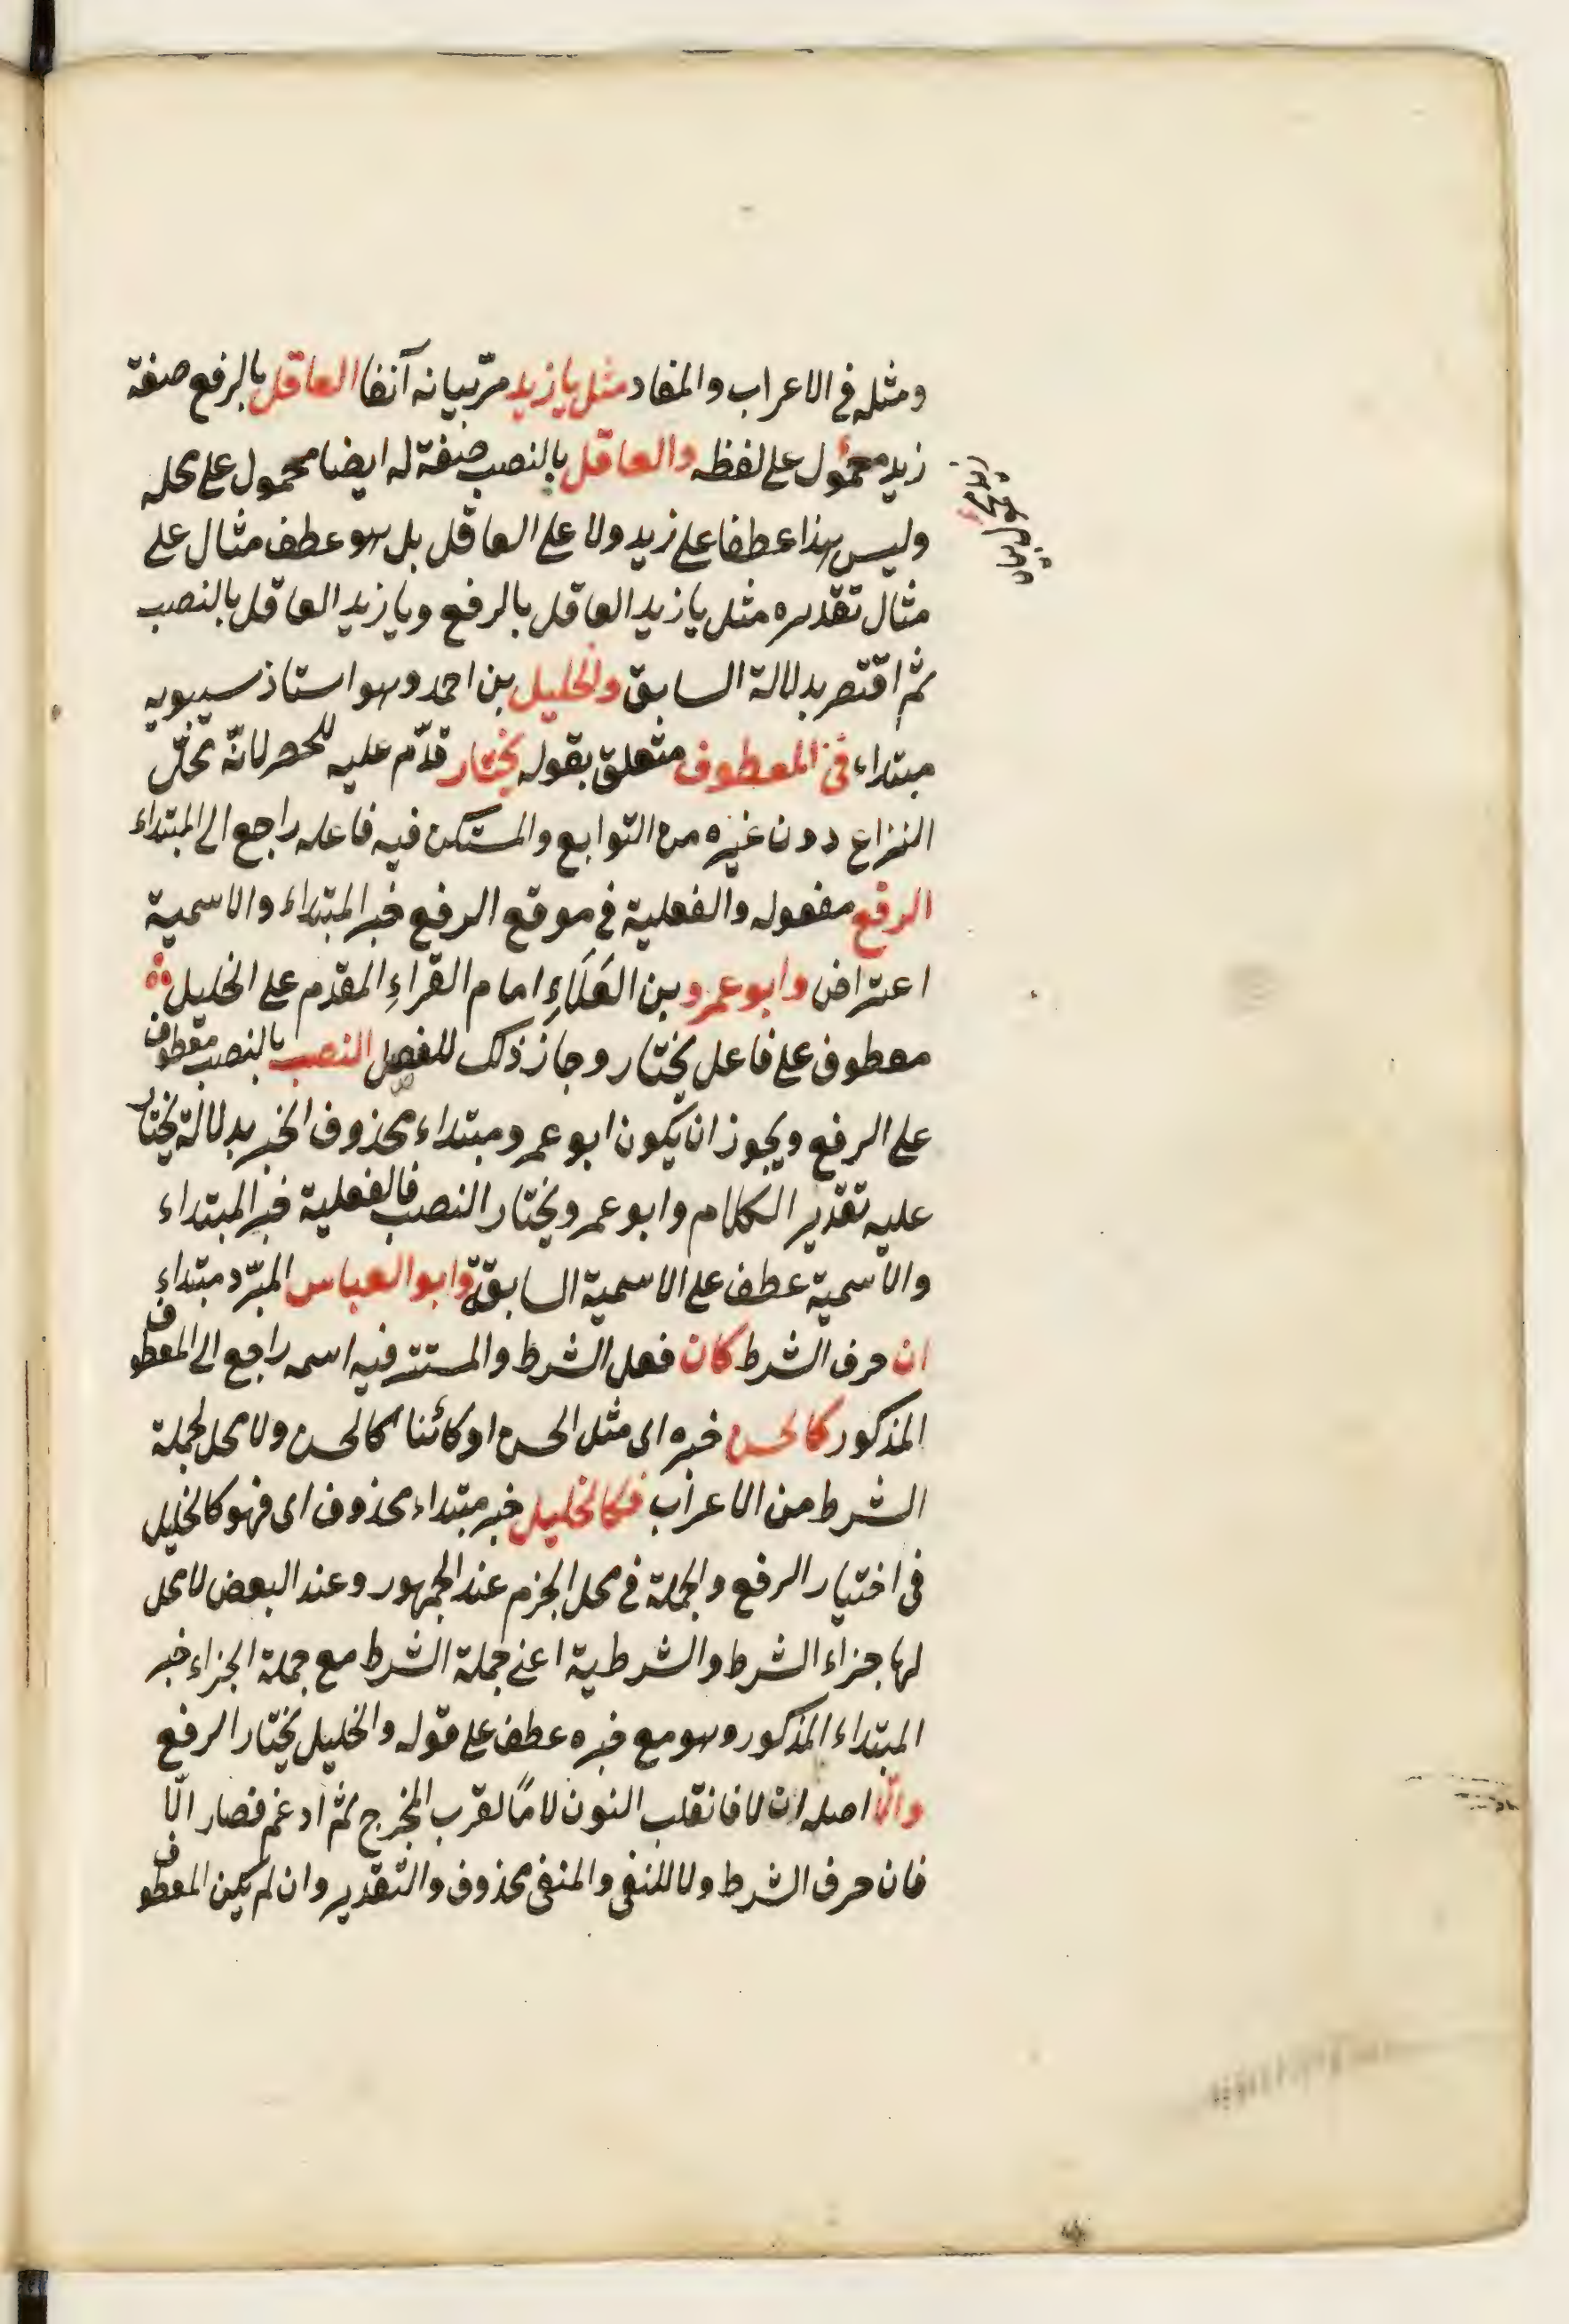 ومثله في الاعراب والمفاد مثل يا زيد مرّ بيانه آنفا العاقل بالرفع صفة
زيد محمول على لفظه والعاقل بالنصب صفة له ايضا محمول على محله
وليس هذا عطفا على زيد ولا على العاقل بل هو عطف مثال على
مثال تقديره مثل يا زيد العاقل بالرفع ويا زيد العاقل بالنصب
ثم اقتصر بدلالة السابق والخليل بن احمد وهو استاذ سيبويه
مبتداء في المعطوف متعلق بقوله يختار قدّم عليه للحصر لانّه محلّ
النزاع دون غيره من التوابع والمستكن فيه فاعله راجع الى المبتداء
الرفع مفعوله والفعلية في موقع الرفع خبر المبتداء والاسمية
اعتراض وابو عمرو بن العَلَاءِ امام القراءِ المقدم على الخليل
معطوف على فاعل يختار وجاز ذلك للفصل النصب بالنصب معطوف
على الرفع ويجوز ان يكون ابو عمرو مبتداء محذوف الخبر بدلالة يختار
عليه تقدير الكلام وابو عمرو يختار النصب فالفعلية خبر المبتداء
والاسمية عطف على الاسمية السابقة وابو العباس المبرّد مبتداء
ان حرف الشرط كان فعل الشرط والمستتر فيه اسمه راجع الى المعطوف
المذكور كالحسن خبره اى مثل الحسن او كائنا كالحسن ولا محل لجملة
الشرط من الاعراب فكالخليل خبر مبتداء محذوف اى فهو كالخليل
فى اختيار الرفع والجملة في محل الجزم عند الجمهور وعند البعض لا محل
لها جزاء الشرط والشرطية اعنى جملة الشرط مع جملة الجزاء خبر
المبتداء المذكور وهو مع خبره عطف على قوله والخليل يختار الرفع
والّا اصله ان لا فانقلب النون لامًا لقرب المخرج ثم ادغم فصار الّا
فان حرف الشرط ولا للنفى والمنفى محذوف والتقدير وان لم يكن المعطوف